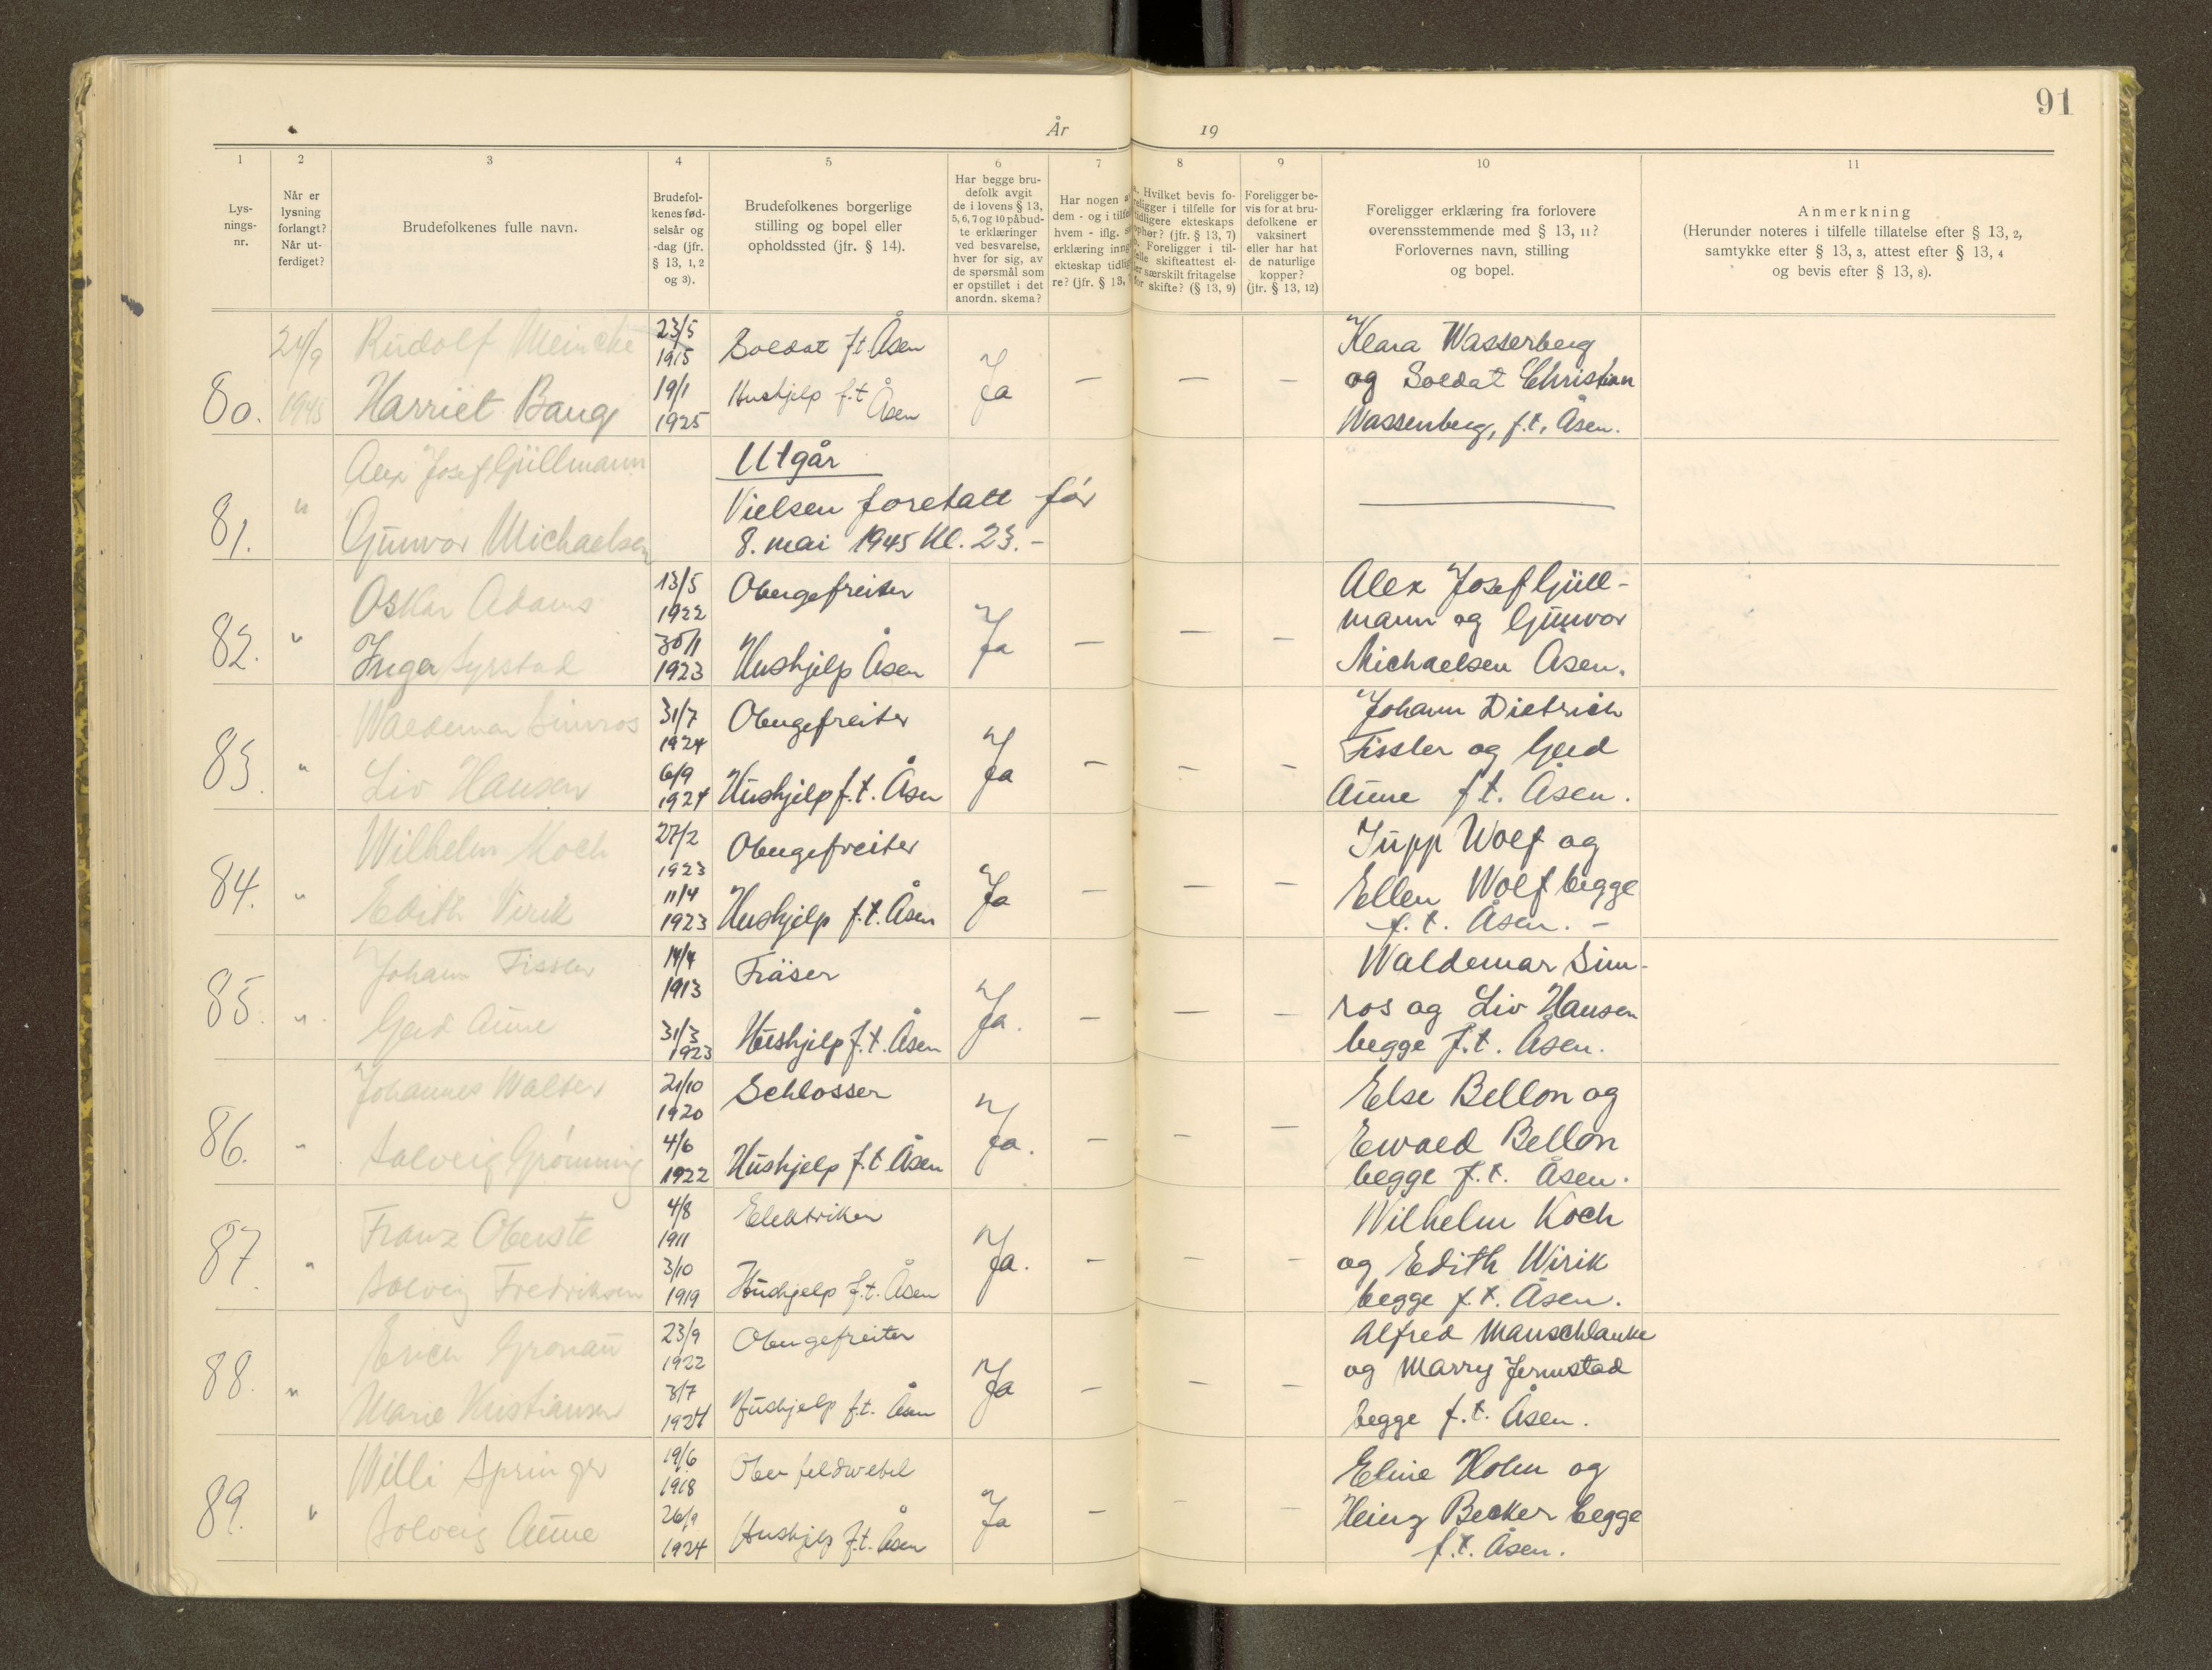 91
År 19
1 2 3 4 5 6 7 8 9 10 11
Lys-
nings-
nr.
Når er
lysning
forlangt?
Når ut-
ferdiget?
Brudefolkenes fulle navn.
Brudefol-
kenes fød-
selsår og
-dag (jfr.
§ 13, 1, 2
og 3).
Brudefolkenes borgerlige
stilling og bopel eller
opholdssted (jfr. § 14).
Har begge bru-
defolk avgit
de i lovens § 13,
5, 6, 7 og 10 påbud-
te erklæringer
ved besvarelse,
hver for sig, av
de spørsmål som
er opstillet i det
anordn. skema?
Har nogen a
dem - og i tilfe
hvem - iflg.
erklæring inng
ekteskap tidlig
re? (jfr. § 13,
Hvilket bevis fo-
religger i tilfelle for
tidligere ekteskaps
ophør? (jfr. § 13, 7)
Foreligger i til-
felle skifteattest el-
ler særskilt fritagelse
for skifte? (§ 13, 9)
Foreligger be-
vis for at bru-
defolkene er
vaksinert
eller har hat
de naturlige
kopper?
(jfr. § 13, 12)
Foreligger erklæring fra forlovere
overensstemmende med § 13, 11?
Forlovernes navn, stilling
og bopel.
Anmerkning
(Herunder noteres i tilfelle tillatelse efter § 13, 2,
samtykke efter § 13, 3, attest efter § 13, 4
og bevis efter § 13, 8).
80.
24/9
1945
Rudolf Meincke
Harriet Baug
23/5
1915
19/1
1925
Soldat f.t. Åsen
Hushjelp f.t. Åsen
Ja
—
—
—
Klara Wasserberg
og Soldat Christian
Wassenberg, f.t. Åsen.
81.
"
Alex Josef Güllmann
Gunvor Michaelsen
Utgår
Vielsen foretatt før
8. mai 1945 Kl. 23.-
82.
"
Oskar Adams
Inga Syrstad
13/5
1922
30/1
1923
Obergefreiter
Hushjelp Åsen
Ja
—
—
—
Alex Josef Güll-
mann og Gunvor
Michaelsen Åsen.
83
"
Waldemar Simros
Liv Hansen
31/7
1924
6/9
1924
Obergefreiter
Hushjelp f.t. Åsen
Ja
—
—
—
Johann Dietrich
Fissler og Gerd
Aune f.t. Åsen.
84.
"
Wilhelm Koch
Edith Virik
27/2
1923
11/4
1923
Obergefreiter
Hushjelp f.t. Åsen
Ja
—
—
—
Jupp Wolf og
Ellen Wolf begge
f.t. Åsen. -
85.
"
Johann Fissler
Gerd Aune
14/4
1913
31/3
1923
Fräser
Hushjelp f.t. Åsen
Ja.
—
—
—
Waldemar Sim-
ros og Liv Hansen
begge f.t. Åsen.
86.
"
Johannes Walter
Solveig Grønning
21/10
1920
4/6
1922
Schlosser
Hushjelp f.t. Åsen
Ja.
—
—
—
Else Bellon og
Ewald Bellon
begge f.t. Åsen.
87.
"
Franz Oberste
Solveig Fredriksen
4/8
1911
3/10
1919
Elektriker
Hushjelp f.t. Åsen
Ja.
—
—
—
Wilhelm Koch
og Edith Wirik
begge f.t. Åsen.
88.
"
Erich Gronau
Marie Kristiansen
23/9
1922
3/7
1924
Obergefreiter
Hushjelp f.t. Åsen
Ja
—
—
—
Alfred Manschlanke
og Marry Jernstad
begge f.t. Åsen.
89.
"
Willi Springer
Solveig Aune
19/6
1918
26/9
1924
Oberfeldwebel
Hushjelp f.t. Åsen
Ja
—
—
—
Eline Holm og
Heinz Becker begge
f.t. Åsen.